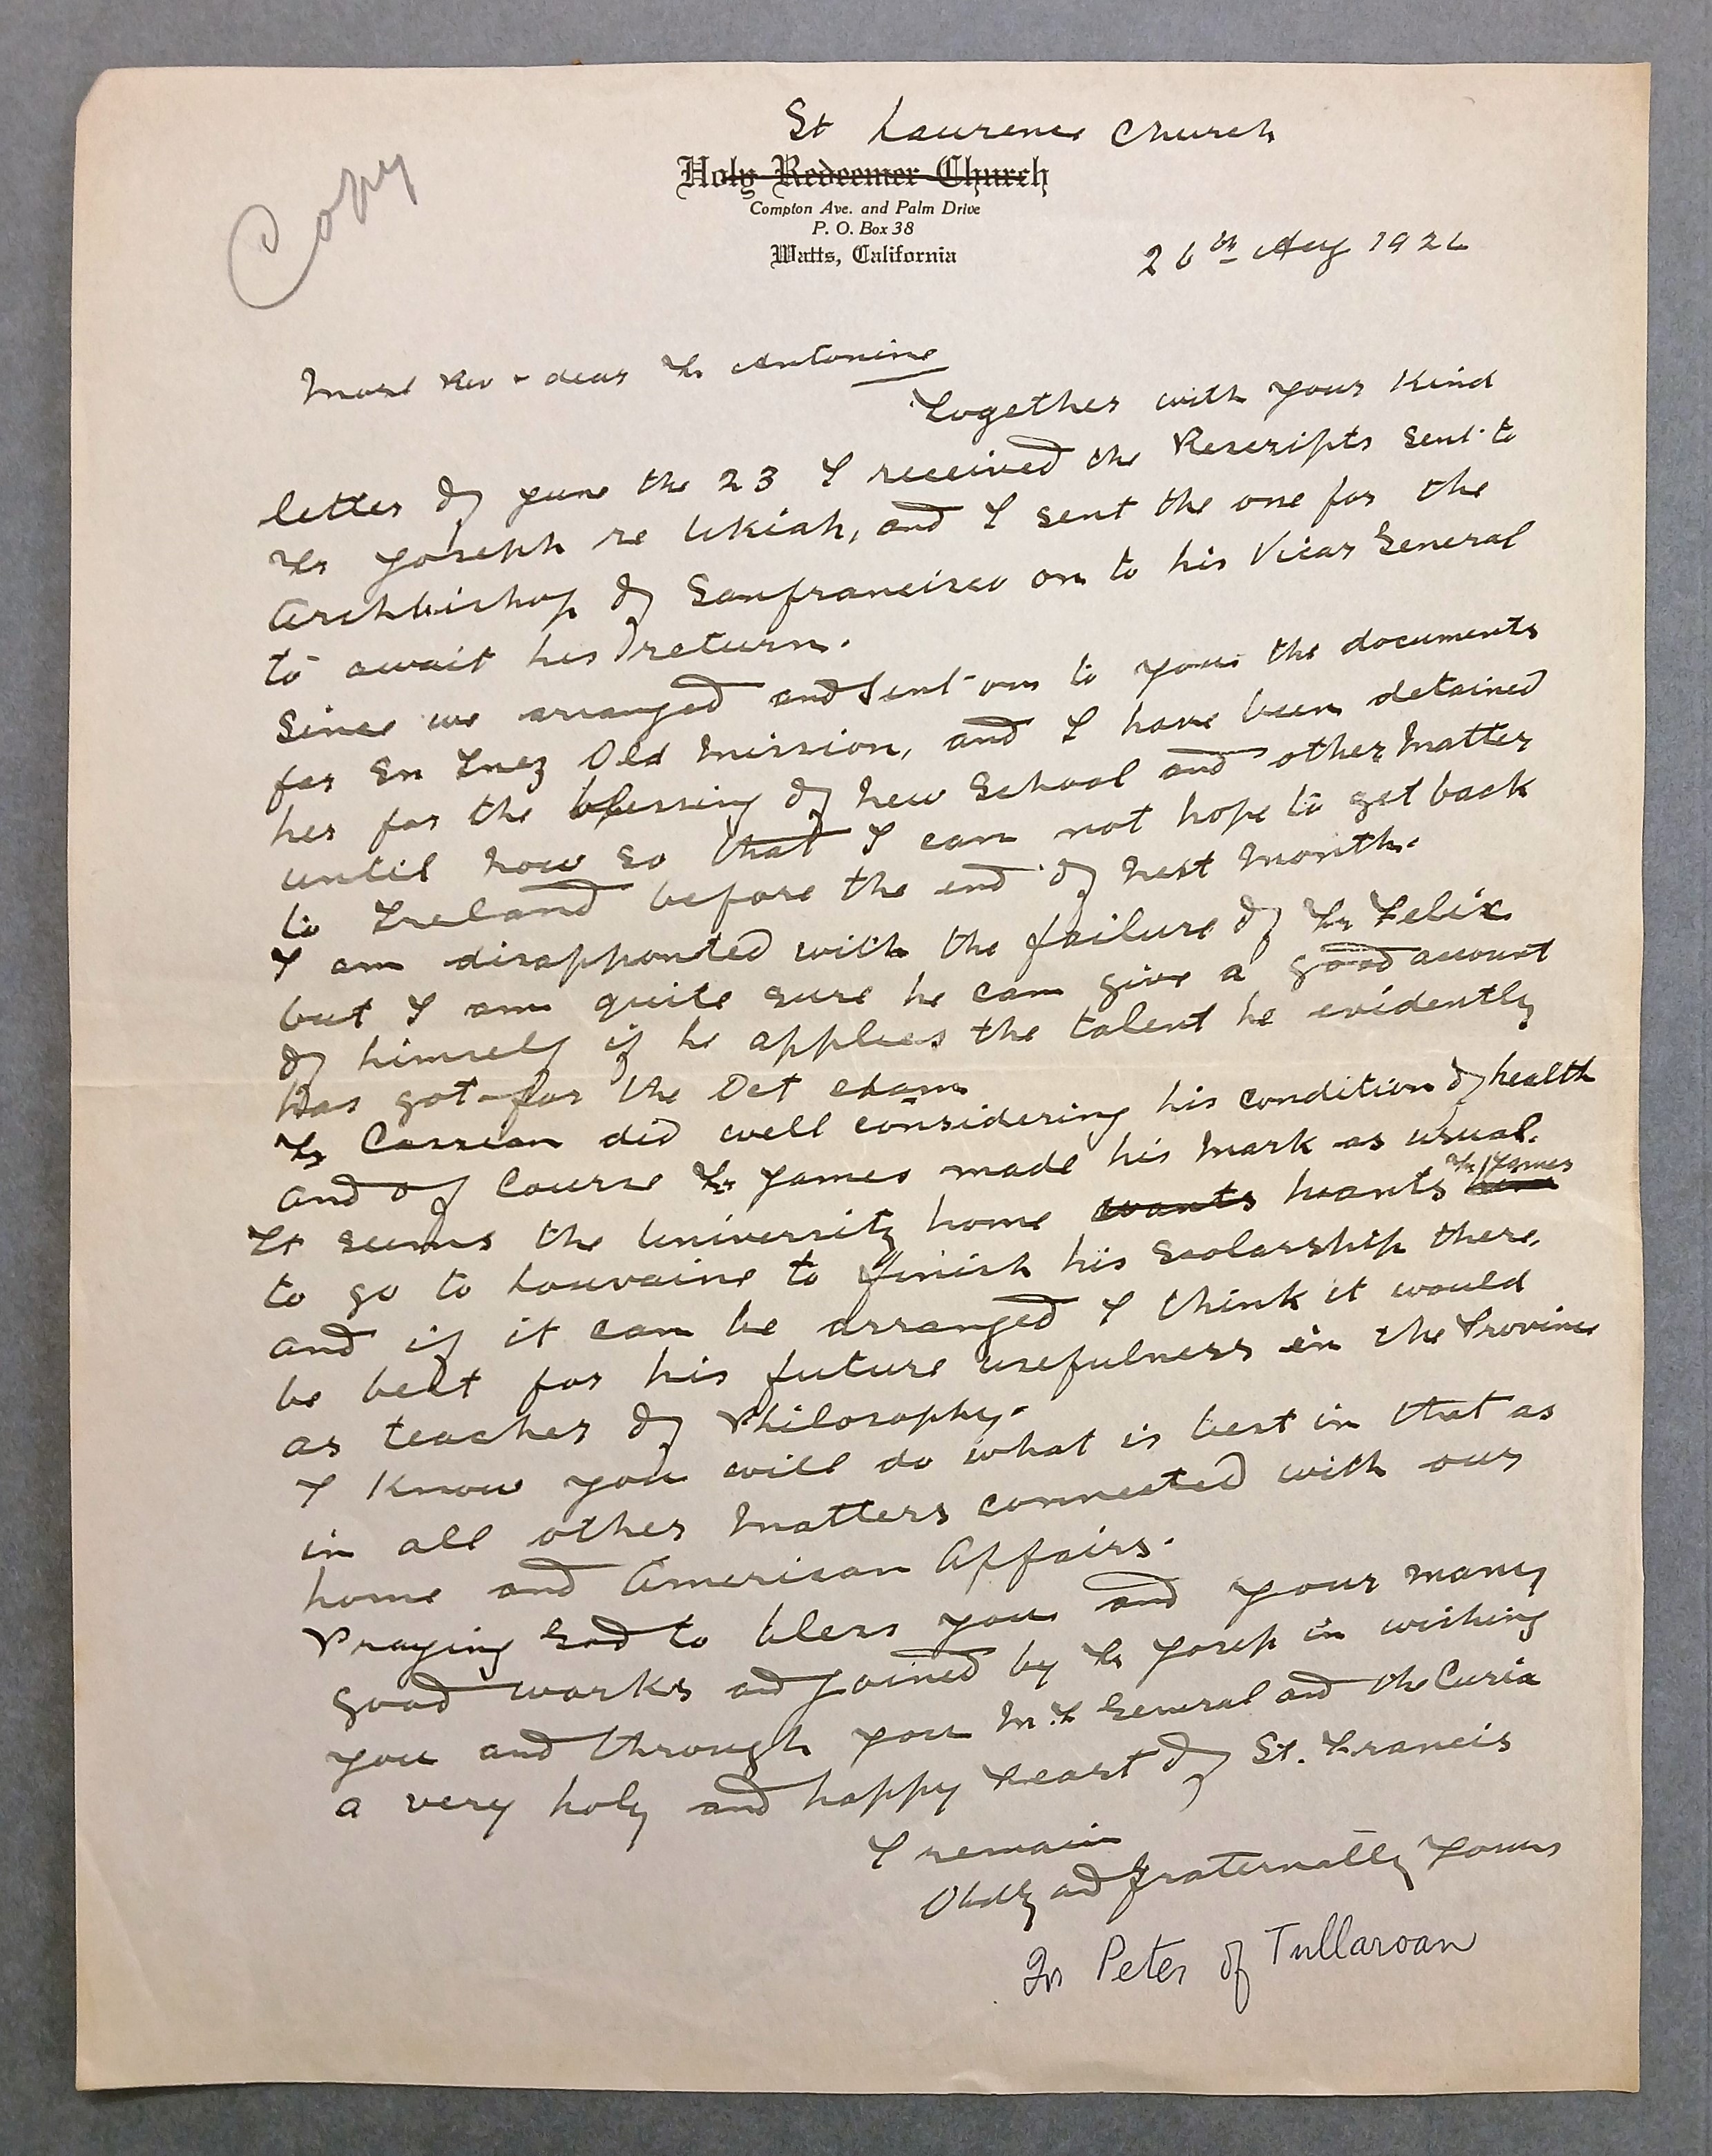 Copy
St Laurence Church
Holy Redeemer Church
Compton Ave. and Palm Drive
P. O. Box 38
Watts, California
26th Aug 1926
Most Rev & dear Fr Antonine
Together with your kind
letter of June the 23 I received the Rescripts sent to
Fr Joseph re Ukiah, and I sent the one for the
Archbishop of Sanfrancisco on to his Vicar General
to await his return.
Since we arranged and sent on to you the documents
for Sn Inez Old Mission, and I have been detained
her for the blessing of new School and other matter
until now so that I can not hope to get back
to Ireland before the end of next month.
I am disapponted with the failure of Fr Felix
but I am quite sure he can give a good account
of himself if he applies the talent he evidently
has got for the Oct exam
Fr Cassian did well considering his condition of health
and of course Fr James made his mark as usual.
It seems the University home wants wants Fr James
to go to Louvaine to finish his scolarship there,
and if it can be arranged I think it would
be best for his future usefulness in the Province
as teacher of Philosophy.
I know you will do what is best in that as
in all other matters connected with our
home and American Affairs.
Praying God to bless you and your many
good works ad joined by Fr Josep in wishing
you and through you M. F General and the Curia
a very holy and happy Feast of St. Francis
I remain
Obdly ad fraternally Yours
Fr Peter of Tullaroan